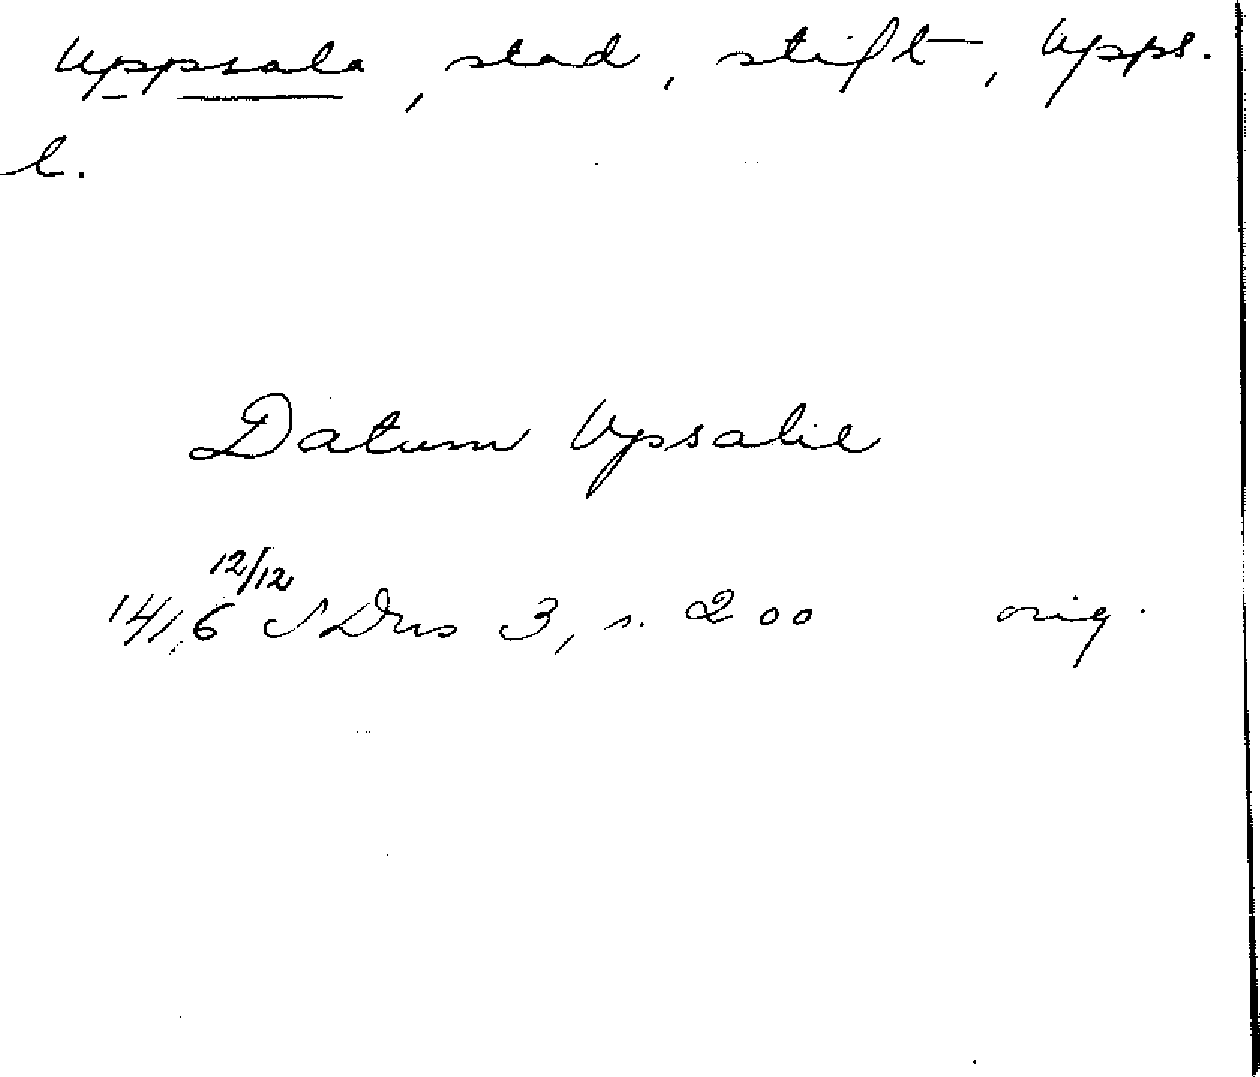 Uppsala, stad, stift, Upps.
l.
Datum Upsalie
1416 12/12 SDns 3, s. 200 orig.